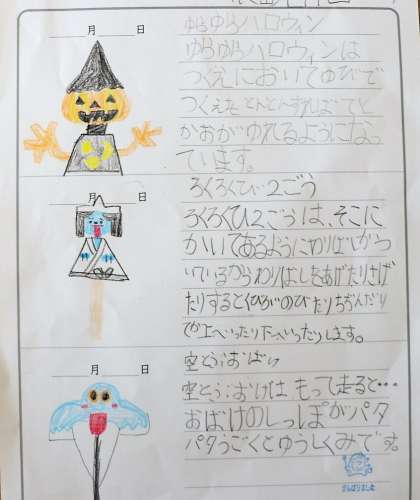 月　日
ゆらゆらハロウィン
ゆらゆらハロウィンは
つくえにおいてゆびで
つくえをとんとんすればてと
かおがゆれるようになっ
ています。
月　日
ろくろくび2ごう
ろくろくび2ごうは、そこに
かいてあるようにわりばしがつ
いているからわりばしをあげたりさげ
たりするとくびがのびたりちぢんだり
でか上へいったり下へいったりします。
月　日
空とぶおばけ
空とぶおばけは もって走ると…
おばけのしっぽがパタ
パタうごくとゆうしくみです。
がんばりました